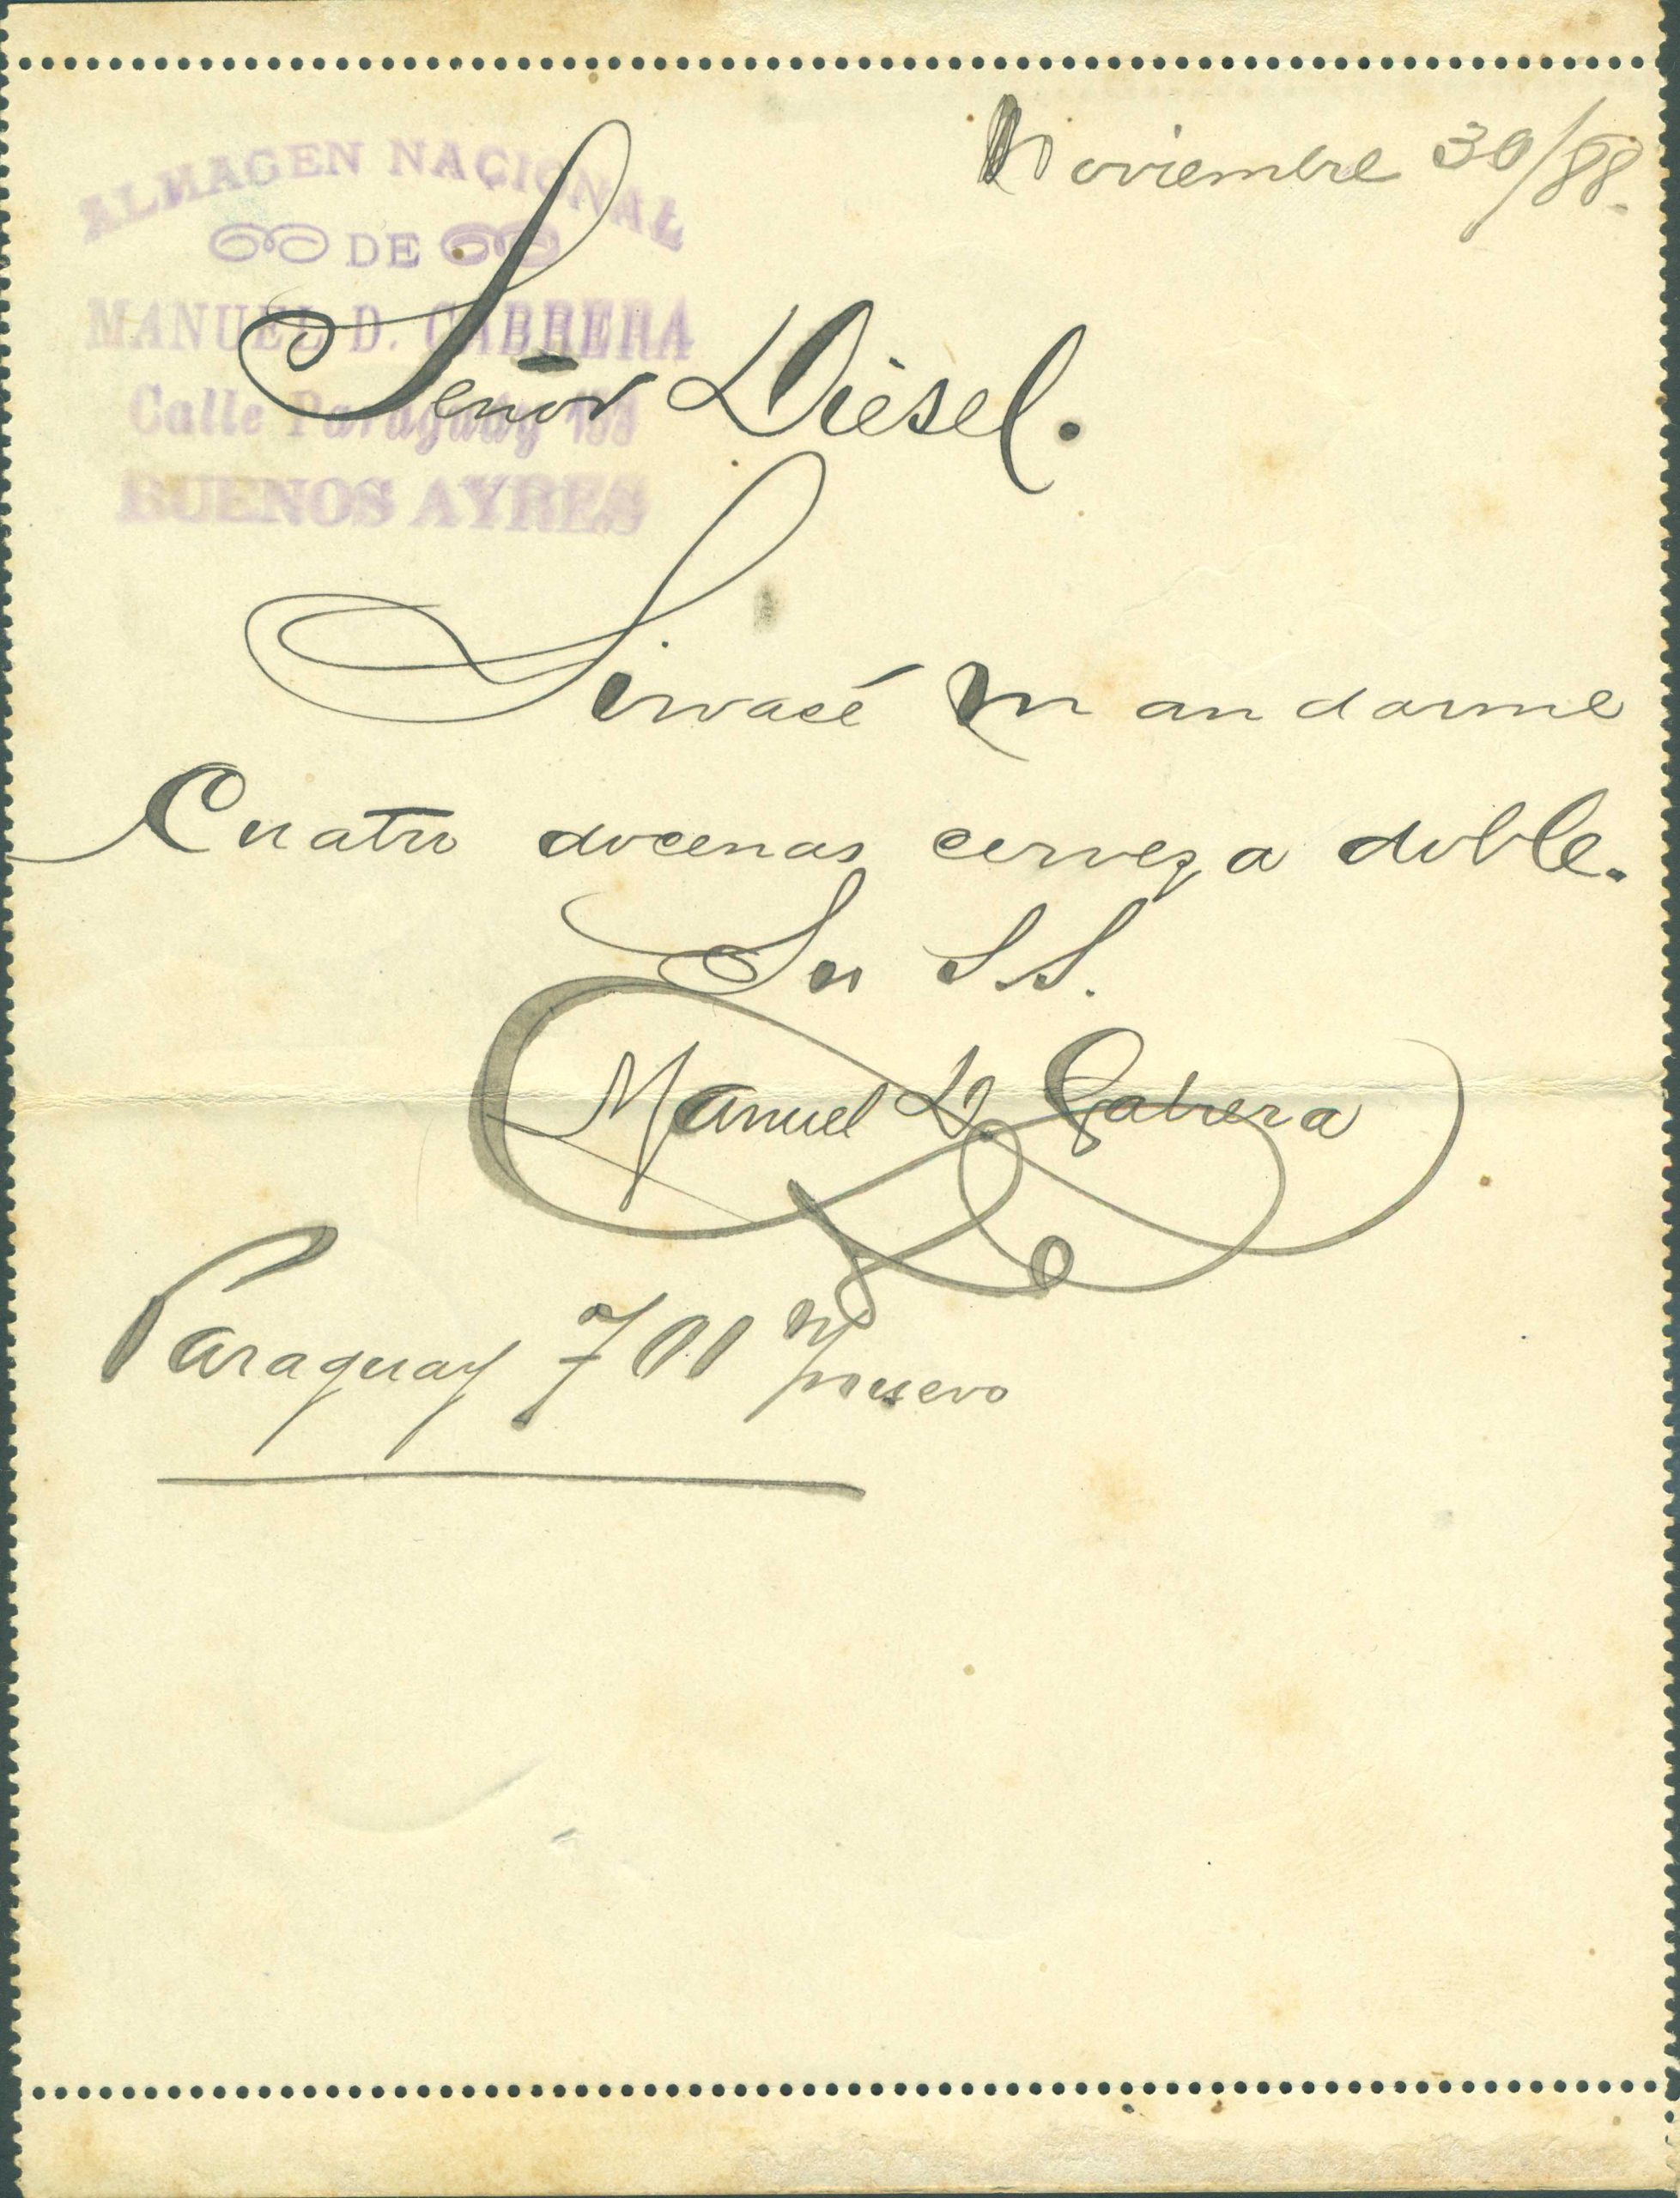 Noviembre 30/88.
ALMACEN NACIONAL
DE
MANUEL D. CABRERA
Calle Paraguay
BUENOS AYRES
Señor Diesel.
Sirvasé mandarme
Cuatro docenas cerveza doble.
Su S.S.
Manuel D. Cabrera
Paraguay 701 nuevo